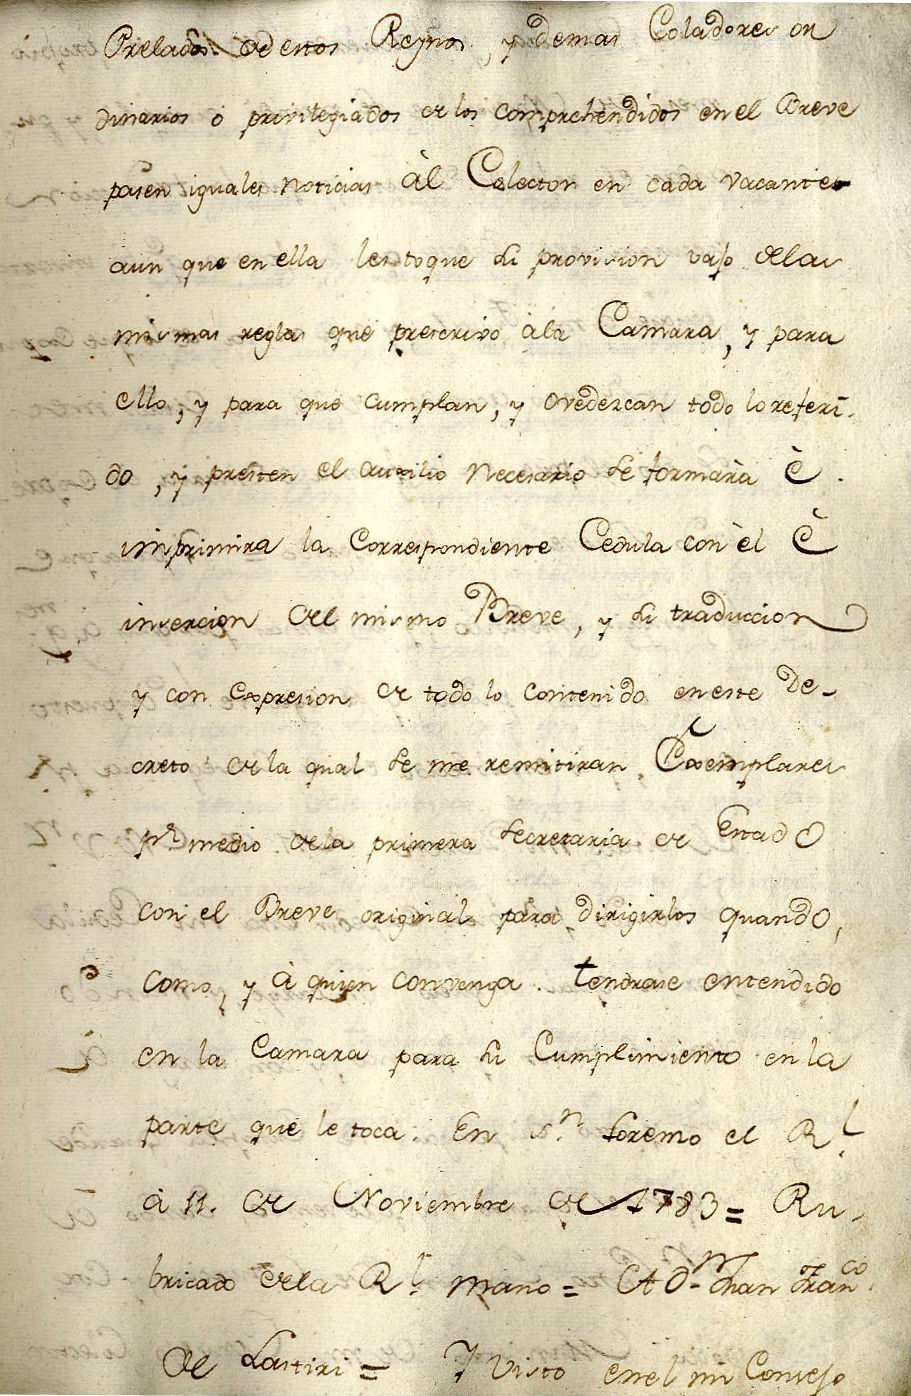 Prelados de estos Reynos, y demas Coladores or
dinarios ó privilegiados de los comprehendidos en el Breve
pasen iguales noticias àl Colector en cada vacante
aun que en ella les toque su provision vajo delas
mismas reglas que prescrivo ála Camara, y para
ello, y para que cumplan, y ovedezcan todo lo referi-
do, y presten el auxilio necesario se formarà è
imprimira la Correspondiente Cedula con èl È
insercion del mismo Breve, y su traduccion
y con expresion de todo lo contenido en este De-
creto: de la qual se me remitiran Exemplares
pr. medio dela primera Secretaria de Estado
con el Breve original para dirigirlos quando,
como, y à quien convenga. tendrase entendido
en la Camara para su Cumplimiento en la
parte que le toca. En Sn. Lorenzo el Rl.
à 11. de Noviembre de 1783 = Ru-
bricado dela Rl. mano = A Dn. Juan Franco.
de Lastiri = Y visto en el mi Consejo